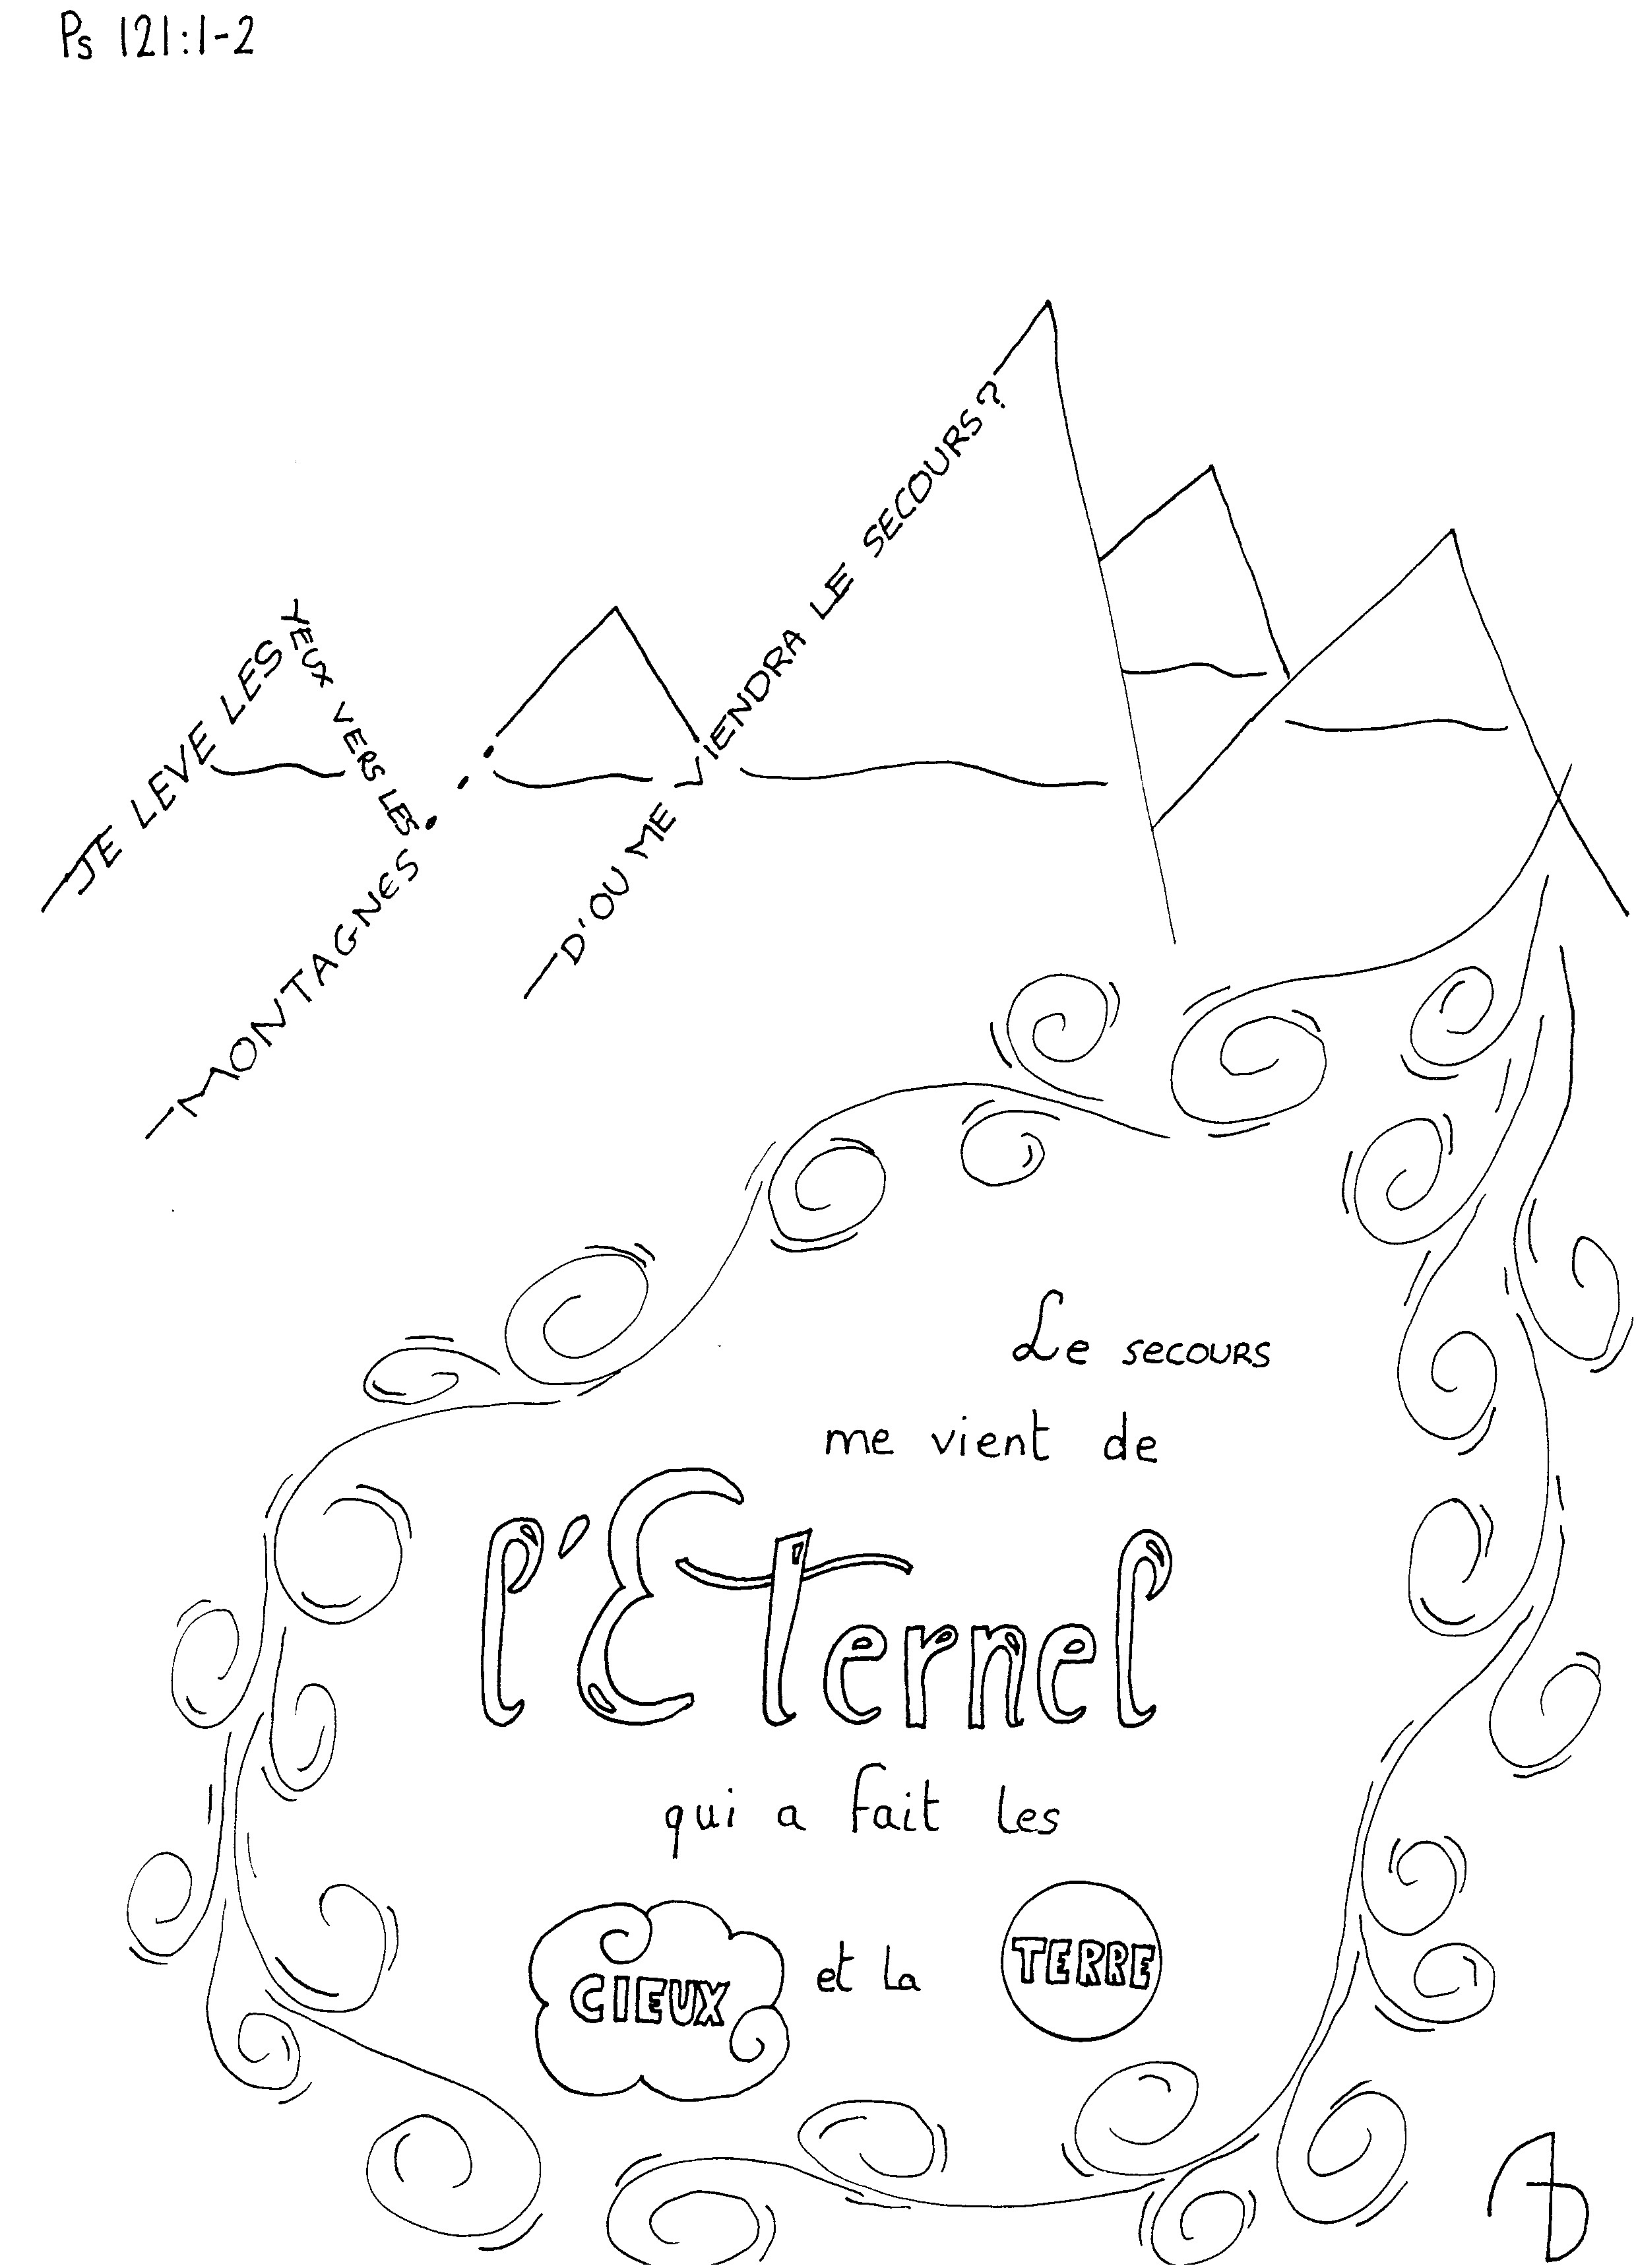 Ps 121:1-2
JE LEVE LES
YEUX VERS LES
MONTAGNES...
D'OU ME VIENDRA LE SECOURS?
Le secours
me vient de
l'Eternel
qui a fait les
CIEUX et la TERRE